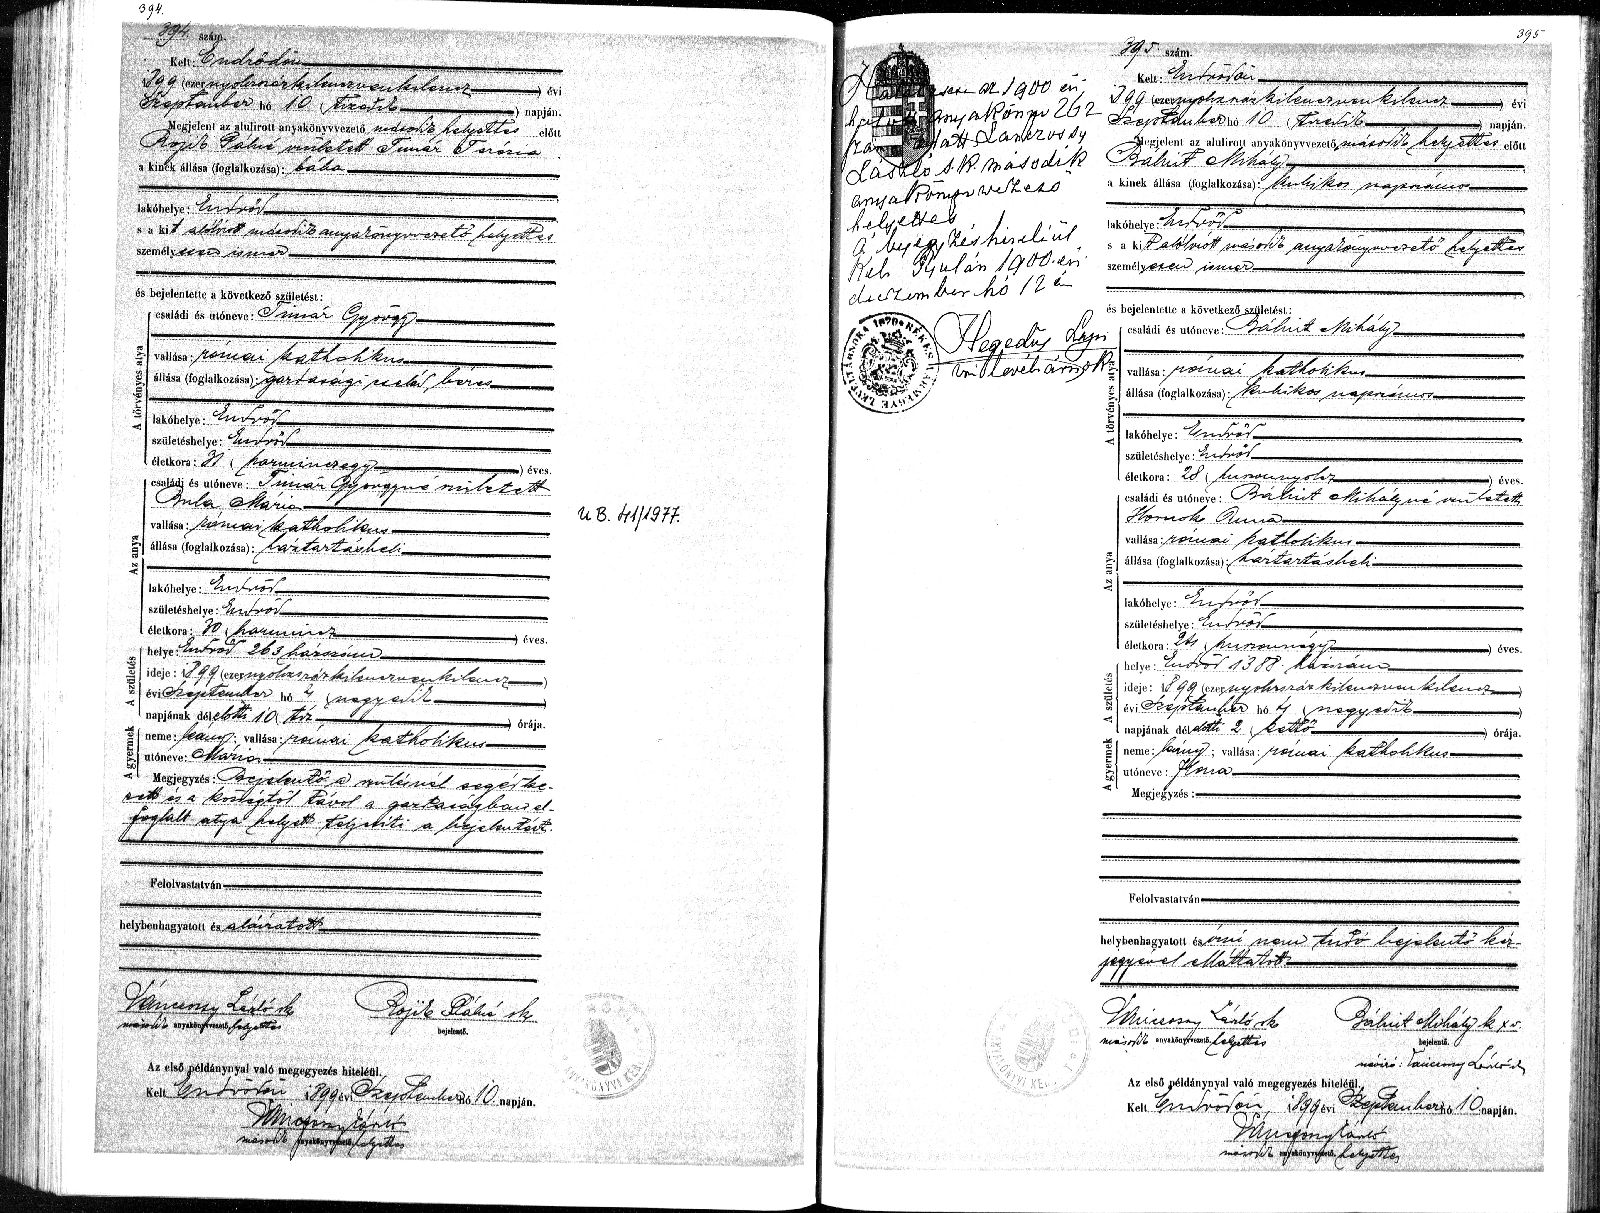 394.
394 szám.
Kelt: Endrődön
1899 (ezernyolczszázkilenczvenkilencz) évi
Szeptember hó 10 (tizedik) napján.
Megjelent az alulirott anyakönyvvezető második helyettes előtt
született Timár Terézia
a kinek állása (foglalkozása): bába
lakóhelye: Endrőd
s a kit alólirott második anyakönyvvezető helyettes
személyesen ismer
és bejelentette a következő születést:
A törvényes atya
családi és utóneve: Timár György
vallása: római katholikus
állása (foglalkozása): gazdasági cseléd, béres
lakóhelye: Endrőd
születéshelye: Endrőd
életkora: 31 (harminczegy) éves.
Az anya
családi és utóneve: Timár Györgyné született
Bula Mária
vallása: római katholikus
állása (foglalkozása): háztartásbeli
lakóhelye: Endrőd
születéshelye: Endrőd
életkora: 30 (harmincz) éves.
A születés
helye: Endrőd 263 házszám
ideje: 1899 (ezernyolczszázkilenczvenkilencz)
évi Szeptember hó 4 (negyedik)
napjának délelőtti 10 (tiz) órája.
A gyermek
neme: leány; vallása: római katholikus
utóneve: Mária
Megjegyzés: Bejelentő a szülésnél segédke-
zett és a községtől távol a gazdaságban el-
foglalt atya helyett teljesiti a bejelentést.
Felolvastatván
helybenhagyatott és aláiratott
Vánczony László sk
második anyakönyvvezető helyettes
sk
bejelentő.
Az első példánynyal való megegyezés hiteléül.
Kelt Endrődön, 1899 évi Szeptember hó 10 napján.
Vánczony László
második anyakönyvvezető helyettes
U B. 41/1977.
az 1900 évi
anyakönyv 262
alatt
László s. k. második
anyakönyvvezető
helyettes
a bejegyzés hiteléül
Kelt Gyulán 1900. évi
deczember hó 12 én
Hegedűs Lajos
levéltárnok
1870 BÉKÉS VÁRMEGYE LEVÉLTÁRNOKA
395
395 szám.
Kelt: Endrődön
1899 (ezernyolczszázkilenczvenkilencz) évi
Szeptember hó 10 (tizedik) napján.
Megjelent az alulirott anyakönyvvezető második helyettes előtt
Bálint Mihály
a kinek állása (foglalkozása): kubikos napszámos
lakóhelye: Endrőd
s a kit alólirott második anyakönyvvezető helyettes
személyesen ismer
és bejelentette a következő születést:
A törvényes atya
családi és utóneve: Bálint Mihály
vallása: római katholikus
állása (foglalkozása): kubikos napszámos
lakóhelye: Endrőd
születéshelye: Endrőd
életkora: 28 (huszonnyolcz) éves.
Az anya
családi és utóneve: Bálint Mihályné született
Hornok Anna
vallása: római katholikus
állása (foglalkozása): háztartásbeli
lakóhelye: Endrőd
születéshelye: Endrőd
életkora: 24 (huszonnégy) éves.
A születés
helye: Endrőd 1388 házszám
ideje: 1899 (ezernyolczszázkilenczvenkilencz)
évi Szeptember hó 4 (negyedik)
napjának délelőtti 2 (kettő) órája.
A gyermek
neme: leány; vallása: római katholikus
utóneve: Ilona
Megjegyzés:
Felolvastatván
helybenhagyatott és irni nem tudó bejelentő kéz-
jegyével elláttatott
Vánczony László sk
második anyakönyvvezető helyettes
Bálint Mihály k x v.
bejelentő.
névíró: Vánczony László sk
Az első példánynyal való megegyezés hiteléül.
Kelt Endrődön, 1899 évi Szeptember hó 10 napján.
Vánczony László
második anyakönyvvezető helyettes